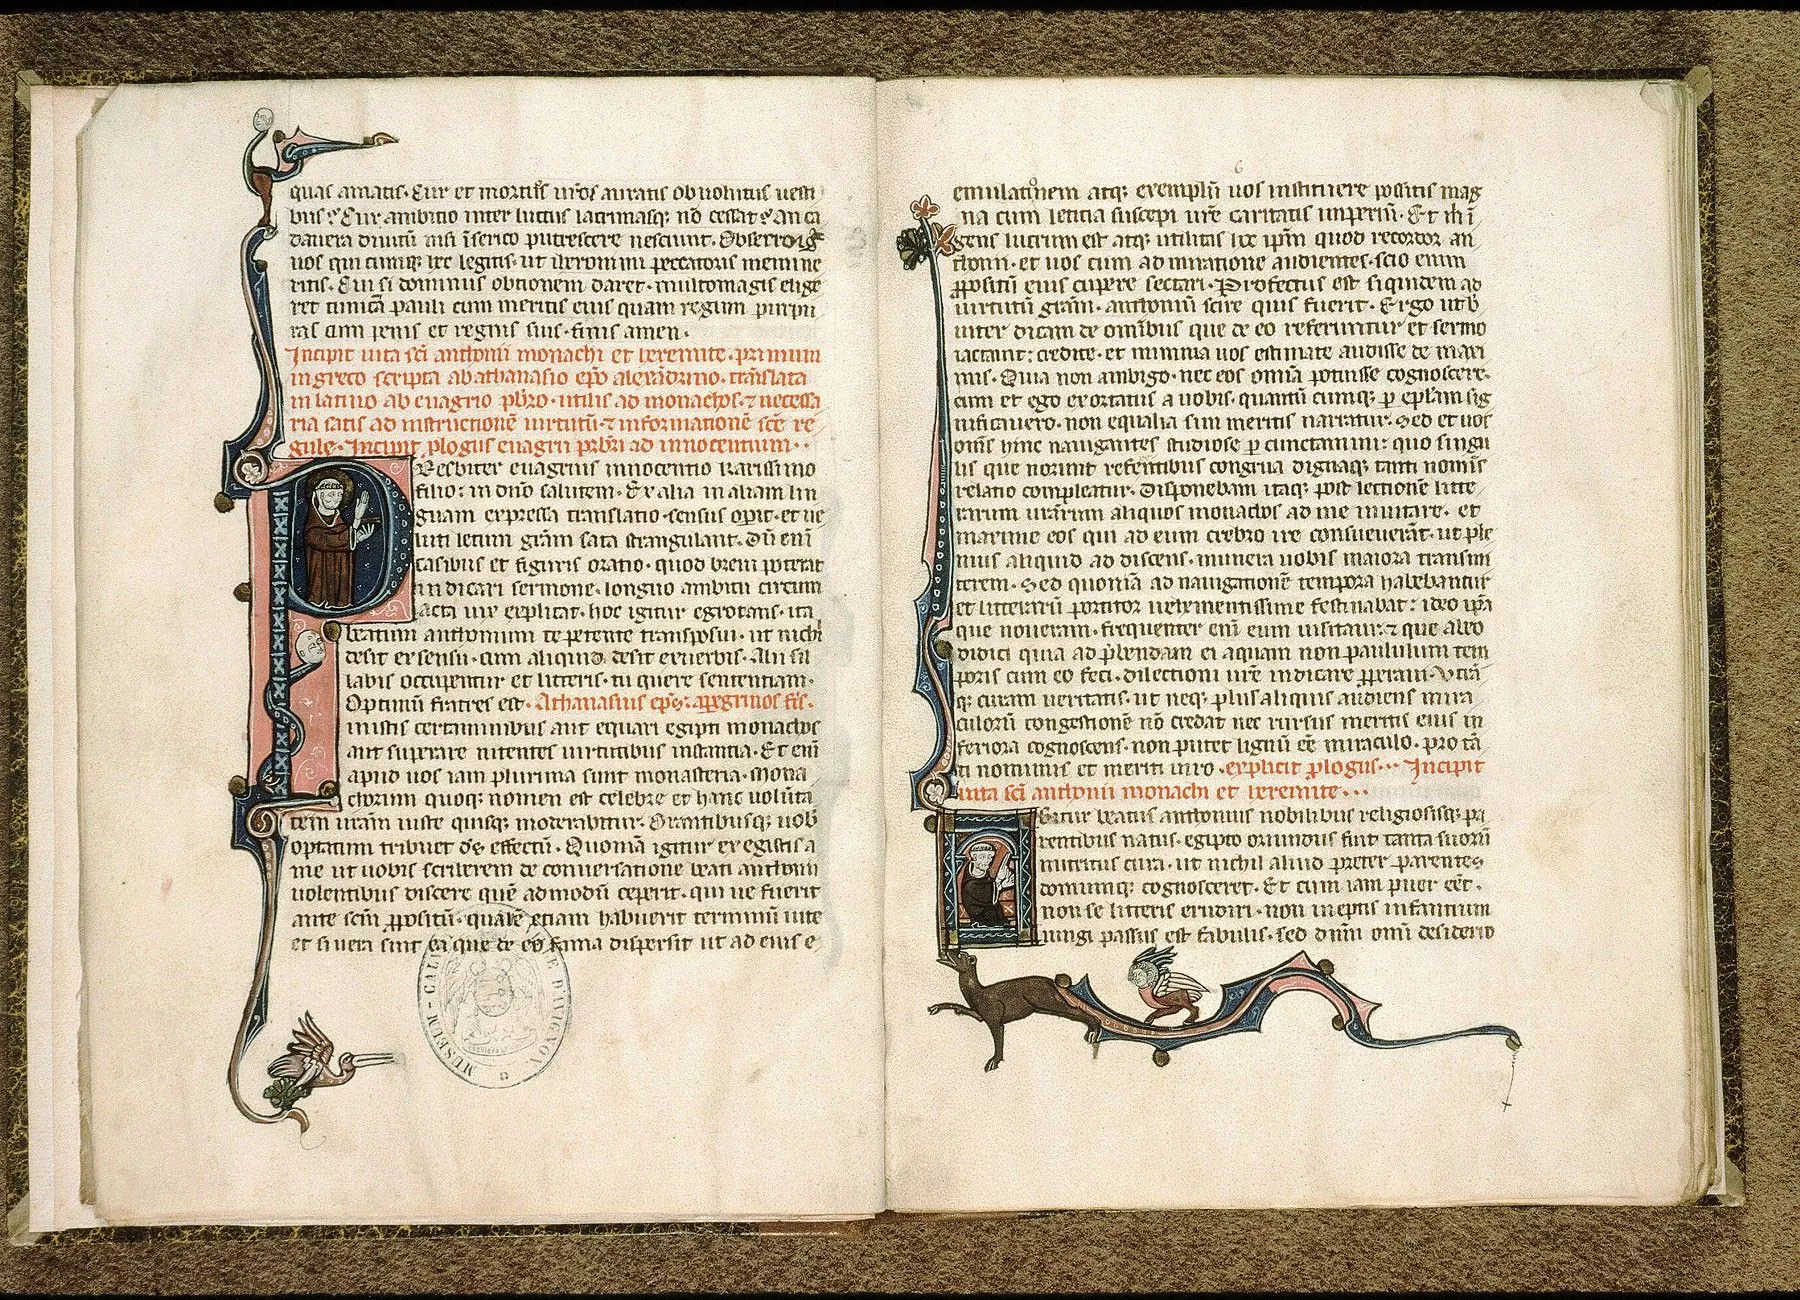 quas amatis. Cur et mortuos vr̄os auratis obvoluitis vesti
bus? Cur ambitio inter luctus lacrimasq; nō cessat? An ca
davera divitū nisi ī serico putrescere nesciunt. Obsecro
vos quicumq; hec legitis. ut iheronimi peccatoris memine
ritis. Cui si dominus obtionem daret. multo magis elige
ret tunicā pauli cum meritis eius quam regum purpu
ras cum penis et regnis suis. finis amen.
Incipit vita sc̄i anthonii monachi et heremite. primum
in greco scripta ab athanasio ep̄o alexādrino. trāslata
in latino ab evagrio pb̄ro. utilis ad monachos. ⁊ necessa
ria satis ad instructionē virtutū. ⁊ informationē sc̄e re
gule. Incipit p̱logus evagrii pr̄bri ad innocentium.
PResbiter evagrius innocentio karissimo
filio: in dn̄o salutem. Ex alia in aliam lin
guam expressa translatio. sensus op̄it. et ve
luti letum grām sata strangulant. Dū enī
casibus et figuris oratio. quod brevi poterat
indicari sermone. longuo ambitu circum
acta vix explicat. hoc igitur egrotans. ita
beatum anthonium te petente transposui. ut nichl
desit ex sensu. cum aliquid desit ex verbis. Alii sil
labis occupentur et litteris. tu quere sententiam.
Optimū fratres est. Athanasius ep̄s. ap̱egrinos fr̄s.
inistis certaminibus aut equari egipti monachos
aut sup̱rare nitentes virtutibus instantia. Et enī
apud vos iam plurima sunt monasteria. Mona
chorum quoq; nomen est celebre et hanc volūta
tem vrām iuste quisq; moderabitur. Orantibusq; vob̄
optatum tribuet d̄s effectū. Quoniā igitur exegistis a
me ut vobis scriberem de conversatione beati anthonii
volentibus discere quē admodū ceperit. qui ve fuerit
ante scm̄ p̱positū. qualē etiam habuerit terminū vite
et si vera sint ea que de eo fama dispersit ut ad eius e
MUSEUM-CALVET D'AVIGNON
6
emulationem atq; exemplū vos instituere positis mag
na cum letitia suscepi vr̄e caritatis imperiū. Et m̄ i
gens lucrum est atq; utilitas hec ipm̄ quod recordor an
thonii. et vos cum admiratione audientes. scio enim
p̱positū eius cupere sectari. Profectus est siquidem ad
virtutū grām. anthoniū scire quis fuerit. Ergo ut b
viter dicam de omībus que de eo referuntur et sermo
iactavit: credite. et minima vos estimate audisse de maxi
mis. Quia non ambigo. nec eos omīa potuisse cognoscere.
cum et ego exortatus a vobis. quantū cumq; p̱ ep̄lam sig
nificavero. non equalia sim meritis narratur. Sed et vos
om̄s hinc navigantes studiose p̱cunctamini: quo singu
lis que norunt referentibus congrua dignaq; tanti nomīs
relatio compleatur. Disponebam itaq; post lectionē litte
rarum vrārum aliquos monachos ad me invitare. et
maxime eos qui ad eum crebro ire consueverāt. ut ple
nius aliquid ad discens. munera vobis maiora transmi
terem. Sed quoniā ad navigationē tempora habebantur
et litterarū portitor vehementissime festinabat: ideo ip̄a
que noveram. frequenter enī eum visitavi: ⁊ que ab eo
didici quia ad p̄bendam ei aquam non paululum tem
poris cum eo feci. dilectioni vr̄e indicare p̱peravi. Utrā
q; curam veritatis. ut neq; plus aliquis audiens mira
culorū congestionē nō credat nec rursus meritis eius in
feriora cognoscens. non putet lignū eē miraculo. pro tā
ti nominis et meriti viro. explicit p̱logus. Incipit
vita sc̄i anthonii monachi et heremite.
Igitur beatus anthonius nobilibus religiosisq; pa
rentibus natus. egipto oriundus fuit tanta suorū
nutritus cura. ut nichil aliud preter parentes
domumq; cognosceret. Et cum iam puer eēt.
non se litteris erudiri. non ineptis infantium
iungi passus est fabulis. sed dn̄m omī desiderio